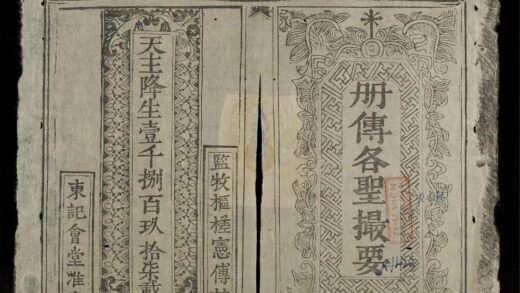 册傳各聖撮要
監牧樞槎憲傳
天主降生壹千捌百玖拾柒載
東記會堂准